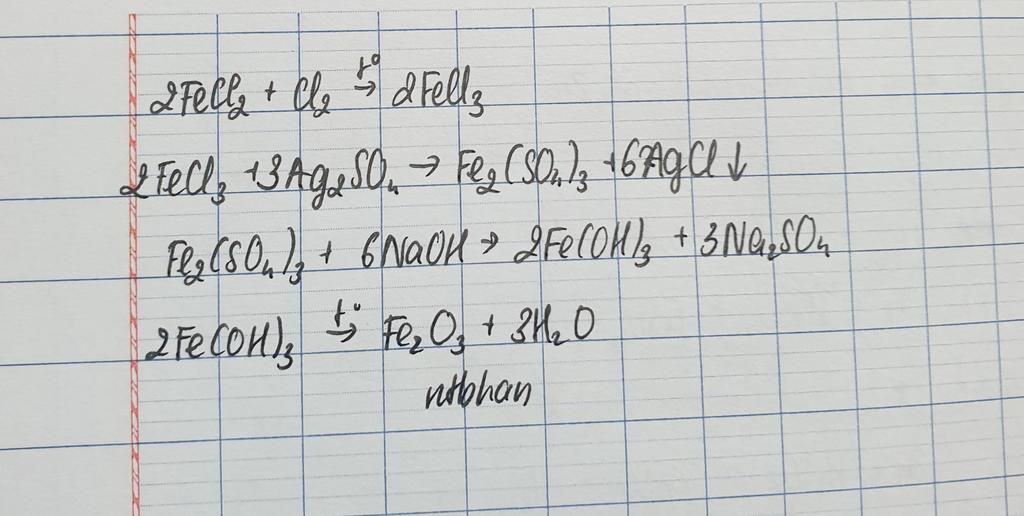 2FeCl₂ + Cl₂ t°→ 2FeCl₃
2FeCl₃ + 3Ag₂SO₄ → Fe₂(SO₄)₃ + 6AgCl↓
Fe₂(SO₄)₃ + 6NaOH → 2Fe(OH)₃ + 3Na₂SO₄
2Fe(OH)₃ t°→ Fe₂O₃ + 3H₂O
ntbhan